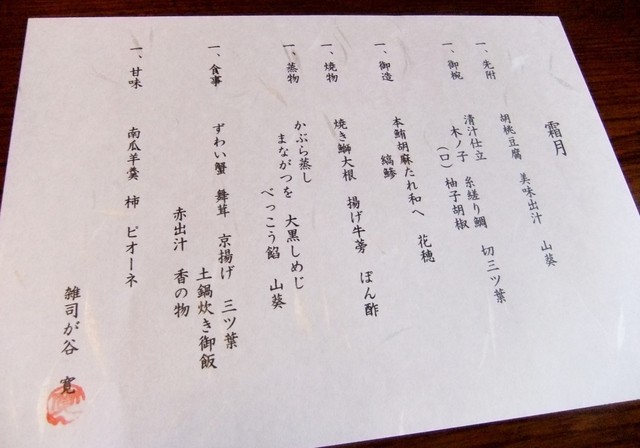 霜月
一、先附
胡桃豆腐 美味出汁 山葵
一、御椀
清汁仕立 糸縒り鯛 切三ツ葉
木ノ子 (口) 柚子胡椒
一、御造
本鮪胡麻たれ和へ 花穂
縞鯵
一、焼物
焼き鰤大根 揚げ牛蒡 ぽん酢
一、蒸物
かぶら蒸し 大黒しめじ
まながつを べっこう餡 山葵
一、食事
ずわい蟹 舞茸 京揚げ 三ツ葉
土鍋炊き御飯
赤出汁 香の物
一、甘味
南瓜羊羹 柿 ピオーネ
雑司が谷 寛